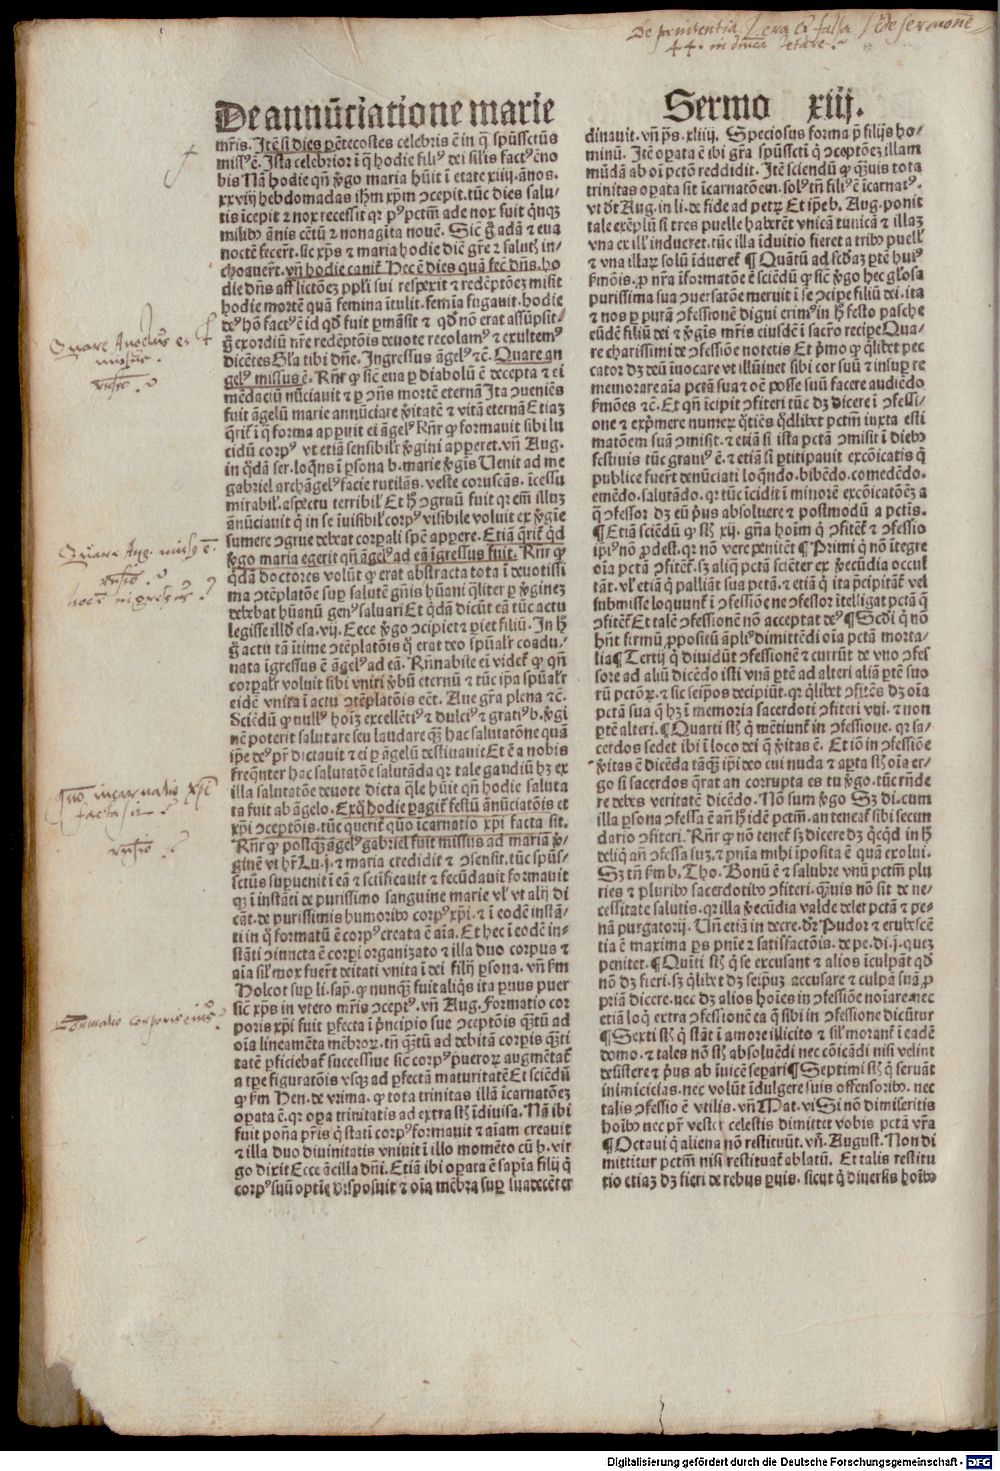 De penitentia Vera et falsa Vide sermonem
44. in d̄nica letare.
De annu̅tiatione marie
Sermo xiij.
mr̄is. Ite̅ si dies pe̅tecostes celebris e̅ in q̄ spu̅ssctus
miss⁹ e̅. Ista celebrior i̅ q̄ hodie fili⁹ dei sil̄is fact⁹ e̅ no
bis Na̅ hodie qn̄ v̾go maria hu̅it i̅ etate xiiij. a̅nos.
xxvij hebdomadas ih̄m xp̄m ꝯcepit. tu̅c dies salu-
tis i̅cepit ⁊ nox recessit qr p⁹ pctm̄ ade nox fuit q̅nqꝫ
milib⁹ a̅nis ce̅tu̅ ⁊ nonagita noue̅. Sic̄ g̊ ada̅ ⁊ eua
nocte̅ fecer̄t. sic xp̄s ⁊ maria hodie die̅ gr̄e ⁊ salut̄ in-
choauer̄t. vn̄ hodie canit̄. Hec e̅ dies qua̅ fec̄ dn̄s. ho
die dn̄s afflictoe̅z pp̄li sui respexit ⁊ rede̅ptoe̅z misit
hodie morte̅ qua̅ femina i̅tulit. femi̅a fugauit. hodie
de⁹ ho̅ fact⁹ e̅ id qd̄ fuit ꝑma̅sit ⁊ qd̄ no̅ erat assu̅psit
g̊ exordiu̅ nr̄e rede̅ptōis deuote recolam⁹ ⁊ exultem⁹
dice̅tes Gl̄a tibi dn̄e. Ingressus a̅gel⁹ ⁊c̄. Quare an
gel⁹ missus e̅. Rn̄r ꝙ sic̄ eua p̱ diabolu̅ e̅ decepta ⁊ ei
me̅daciu̅ nu̅ciauit ⁊ ꝑ ꝯn̄s morte̅ eterna̅ Ita ꝯuenie̅s
fuit a̅gelu̅ marie annu̅ciare v̾itate̅ ⁊ vita̅ eterna̅ Etiaꝫ
q̄rit̄ i̅ q̄ forma appuit ei a̅gel⁹ Rn̄r ꝙ formauit sibi lu
cidu̅ corp⁹ vt etia̅ sensibilr̄ v̾gini apperet. vn̄ Aug.
in q̅da̅ ser. loq̅ns i̅ ꝑsona b. marie v̾gis Uenit ad me
gabriel archa̅gel⁹ facie rutila̅s. veste corusca̅s. i̅cessu
mirabil̄. aspectu terribil̄ Et h̄ ꝯgruu̅ fuit qr eu̅ illuꝫ
a̅nu̅ciauit q̄ in se i̅uisibil̄ corp⁹ visibile voluit ex v̾gie
sumere ꝯgrue debat corpali spe̅ appere. Etia̅ q̄rit̄ qd̄
v̾go maria egerit qn̄ a̅gel⁹ ad ea̅ i̅gressus fuit. Rn̄r ꝙ
q̅da̅ doctores volu̅t ꝙ erat abstracta tota i̅ deuotissi
ma ꝯte̅platōe sup̱ salute gn̄is hu̅ani q̅liter ꝑ v̾gineꝫ
debebat hu̅anu̅ gen⁹ saluari Et q̅da̅ dicu̅t ea̅ tu̅c actu
legisse illd̄ esa. vij. Ecce v̾go ꝯcipiet ⁊ ꝑiet filiu̅. In h̄
g̊ actu ta̅ i̅time ꝯte̅platōis q̄ erat deo spu̅alr̄ coadu-
nata i̅gressus e̅ a̅gel⁹ ad ea̅. Rn̄nabile ei̅ videt̄ ꝙ qn̄
corꝑalr̄ voluit sibi vniri v̾bu̅ eternu̅ ⁊ tu̅c ip̄a spu̅alr̄
eide̅ vnita i̅ actu ꝯte̅platōis ee̅t. Aue gr̄a plena ⁊c̄.
Scie̅du̅ ꝙ null⁹ hoi̅z excelle̅ti⁹ ⁊ dulci⁹ ⁊ grati⁹ b. v̾gi
ne̅ poterit salutare seu laudare q̄ꝫ hac salutatōne qua̅
ip̄e de⁹ pr̄ dictauit ⁊ ei ꝑ a̅gelu̅ destinauit Et e̅ a nobis
freq̅nter hac salutatōe saluta̅da qr tale gaudiu̅ hꝫ ex
illa salutatōe deuote dicta q̅le hu̅it qn̄ hodie saluta
ta fuit ab a̅gelo. Exq̄ hodie ꝑagit̄ festu̅ a̅nu̅ciatōis et
xp̄i ꝯceptōis. tu̅c querit̄ quo̅ i̅carnatio xp̄i facta sit.
Rn̄r ꝙ postq̄ꝫ a̅gel⁹ gabriel fuit missus ad maria̅ v̾-
gine̅ vt hr̄ Lu. j. ⁊ maria credidit ⁊ ꝯsensit. tu̅c spu̅s-
sctus supuenit i̅ ea̅ ⁊ sctificauit ⁊ fecu̅dauit formauit
qꝫ i̅ insta̅ti de purissimo sanguine marie vl̄ vt alij di
cu̅t. de purissimis humorib⁹ corp⁹ xp̄i. ⁊ i̅ eode̅ insta̅-
ti in q̄ formatu̅ e̅ corp⁹ creata e̅ ai̅a. Et hec i̅ eode̅ in-
sta̅ti ꝯiuncta e̅ corpi organizato ⁊ illa duo corpus ⁊
ai̅a sil̄ mox fuer̄t deitati vnita i̅ dei filij ꝑsona. vn̄ ẜm
Holcot sup̱ li. sap̄. q nunq̄ꝫ fuit aliq̅s ita ꝑuus puer
sic̄ xp̄s in vtero mr̄is ꝯcept⁹. vn̄ Aug. Formatio cor
poris xp̄i fuit ꝑfecta i̅ p̄ncipio sue ꝯceptōis q̅tu̅ ad
oi̅a lineame̅ta me̅broꝝ. tn̄ q̅tu̅ ad debita̅ corpis q̅ti
tate̅ ꝑficiebat̄ successiue sic̄ corp⁹ pueroꝝ augme̅tat̄
a tꝑe figuratōis vsqꝫ ad ꝑfecta̅ maturitate̅ Et scie̅du̅
ꝙ ẜm Hen. de vrima. ꝙ tota trinitas illa̅ i̅carnatōeꝫ
oꝑata e̅. qr oꝑa trinitatis ad extra sūt i̅diuisa. Na̅ ibi
fuit pote̅a pr̄is q̄ stati̅ corp⁹ formauit ⁊ ai̅am creauit
⁊ illa duo diuinitatis vniuit i̅ illo mome̅to cu̅ b. vir
go dixit Ecce a̅cilla dn̄i. Etia̅ ibi oꝑata e̅ sapi̅a filij q̄
corp⁹ suu̅ optie̅ disposuit ⁊ oi̅a me̅bra sup̱ sua dece̅ter
dinauit. vn̄ ps̄. xliiij. Speciosus forma p̄ filijs ho-
minu̅. Ite̅ oꝑata e̅ ibi gr̄a spu̅sscti q̄ ꝯceptōeꝫ illam
mu̅da̅ ab oi̅ pctō reddidit. Ite̅ sciendu̅ ꝙ q̅uis tota
trinitas oꝑata sit i̅carnatōem. sol⁹ tn̄ fili⁹ e̅ i̅carnat⁹.
vt dt̄ Aug. in li. de fide ad petꝝ Et ip̄e b. Aug. ponit
tale exe̅plu̅ si tres puelle haber̄et vnica̅ tunica̅ ⁊ illaꝫ
vna ex ill̄ indueret. tu̅c illa i̅duitio fieret a trib⁹ puell̄
⁊ vna illaꝝ solu̅ i̅dueret̄ ¶ Qua̅tu̅ ad scd̄aꝫ ꝑte̅ hui⁹
ẜmōis. ꝓ nr̄a i̅formatōe e̅ sciendu̅ ꝙ sic̄ v̾go hec gl̄osa
purissima sua ꝯuersatōe meruit i̅ se ꝯcipe filiu̅ dei. ita
⁊ nos ꝑ pura̅ ꝯfessione̅ digni erim⁹ in h̄ festo pasche
eu̅de̅ filiu̅ dei ⁊ v̾gis mr̄is eiusde̅ i̅ sacr̄o recipe Qua-
re charissimi de ꝯfessio̅e notetis Et p̄mo ꝙ q̅libet pec
cator dꝫ deu̅ i̅uocare vt illu̅inet sibi cor suu̅ ⁊ insup̱ re
memorare ai̅a pctā sua ⁊ oe̅ posse suu̅ facere audie̅do
ẜmo̅es ⁊c̄. Et qn̄ i̅cipit ꝯfiteri tu̅c dꝫ dicere i̅ ꝯfessi-
one ⁊ exp̄mere numeꝝ q̅tie̅s q̅dlibet pctm̄ iuxta esti
matōem sua̅ ꝯmisit. ⁊ etia̅ si ista pctā ꝯmisit i̅ dieb⁹
festiuis tu̅c graui⁹ e̅. ⁊ etia̅ si ꝑtitipauit exco̅icatis q̄
publice fuer̄t denu̅ciati loq̅ndo. bibe̅do. comede̅do.
eme̅do. saluta̅do. qr tu̅c i̅cidit i̅ minore̅ exco̅icatōeꝫ a
q̄ ꝯfessor dꝫ eu̅ p̄us absoluere ⁊ postmodu̅ a pctis.
¶ Etia̅ sciendu̅ ꝙ sūt xij. gn̄a hoi̅m q̄ ꝯfitēt̄ ⁊ ꝯfessio
ip̄i⁹ no̅ ꝓdest. qr no̅ vere penite̅t ¶ Primi q̄ no̅ i̅tegre
oi̅a pctā ꝯfitēt̄. sꝫ aliq̄ pctā scie̅ter ex v̾ecu̅dia occul
ta̅t. vl̄ etia̅ q̄ pallia̅t sua pctā. ⁊ etia̅ q̄ ita p̄cipita̅t̄ vel
submisse loquunt̄ i̅ ꝯfessio̅e ne ꝯfessor i̅telligat pctā q̄
ꝯfitēt̄ Et tale̅ ꝯfessione̅ no̅ acceptat de⁹ ¶ Scd̄i q̄ no̅
hn̄t firmu̅ ꝓpositu̅ a̅pli⁹ dimitte̅di oi̅a pctā morta-
lia ¶ Tertij q̄ diuidu̅t ꝯfessione̅ ⁊ curru̅t de vno ꝯfes
sore ad aliu̅ dice̅do isti vna̅ ꝑte̅ ad alteri alia̅ ꝑte̅ suo
ru̅ pctōꝝ. ⁊ sic seip̄os decipiu̅t. qr q̅libet ꝯfite̅s dꝫ oi̅a
pctā sua q̄ hꝫ i̅ memoria sacerdoti ꝯfiteri vni. ⁊ non
ꝑte̅ alteri. ¶ Quarti sūt q̄ me̅tiunt̄ in ꝯfessione. qr sa-
cerdos sedet ibi i̅ loco dei q̄ v̾itas e̅. Et io̅ in ꝯfessio̅e
v̾itas e̅ dice̅da ta̅q̄ꝫ ip̄i deo cui nuda ⁊ apta sūt oi̅a er-
go si sacerdos q̄rat an corrupta es tu v̾go. tu̅c rn̄de
re debes veritate̅ dice̅do. No̅ sum v̾go Sꝫ di. cum
illa ꝑsona ꝯfessa e̅ an̄ h̄ ide̅ pctm̄. an teneat̄ sibi secun
dario ꝯfiteri. Rn̄r ꝙ no̅ tenet̄ sꝫ dicere dꝫ q̅cq̅d in h̄
deliq̄ an̄ ꝯfessa suꝫ. ⁊ pn̄ia mihi i̅posita e̅ qua̅ exolui.
Sꝫ tn̄ ẜm b. Tho. Bonu̅ e̅ ⁊ salubre vnu̅ pctm̄ plu
ries ⁊ plurib⁹ sacerdotib⁹ ꝯfiteri. q̅uis no̅ sit de ne-
cessitate salutis. qr illa v̾ecu̅dia valde delet pctā ⁊ pe-
na̅ purgatorij. Vn̄ etia̅ in decre. dr̄ Pudor ⁊ erubesce̅
tia e̅ maxima ꝑs pn̄ie ⁊ satisfactōis. de pe. di. j. queꝫ
penitet. ¶ Qui̅ti sūt q̄ se excusant ⁊ alios i̅culpa̅t qd̄
no̅ dꝫ fieri. sꝫ q̅libet dꝫ seip̄uꝫ accusare ⁊ culpa̅ sua̅ ꝓ
pria̅ dicere. nec dꝫ alios hoi̅es in ꝯfessio̅e no̅iare. nec
etia̅ loq̄ extra ꝯfessione̅ ea q̄ sibi in ꝯfessio̅e dicu̅tur
¶ Sexti sūt q̄ sta̅t i̅ amore illicito ⁊ sil̄ morant̄ i̅ eade̅
domo. ⁊ tales no̅ sūt absolue̅di nec co̅ica̅di nisi velint
desistere ⁊ p̄us ab i̅uice̅ separi ¶ Septimi sūt q̄ serua̅t
inimicicias. nec volu̅t i̅dulgere suis offensorib⁹. nec
talis ꝯfessio e̅ vtilis. vn̄ Mat. vi Si no̅ dimiseritis
hoi̅b⁹ nec pr̄ vester celestis dimittet vobis pctā vr̄a
¶ Octaui q̄ aliena no̅ restituu̅t. vn̄. August. Non di
mittitur pctm̄ nisi restituat̄ ablatu̅. Et talis restitu
tio etiaꝫ dꝫ fieri de rebus ꝑuis. sicut q̄ diuersis hoi̅b⁹
Quare Angelus est
missus.
Quare Ang. missus e.
Quo incarnatio xpi
facta sit
Formatio corporis eius
Digitalisierung gefördert durch die Deutsche Forschungsgemeinschaft - DFG